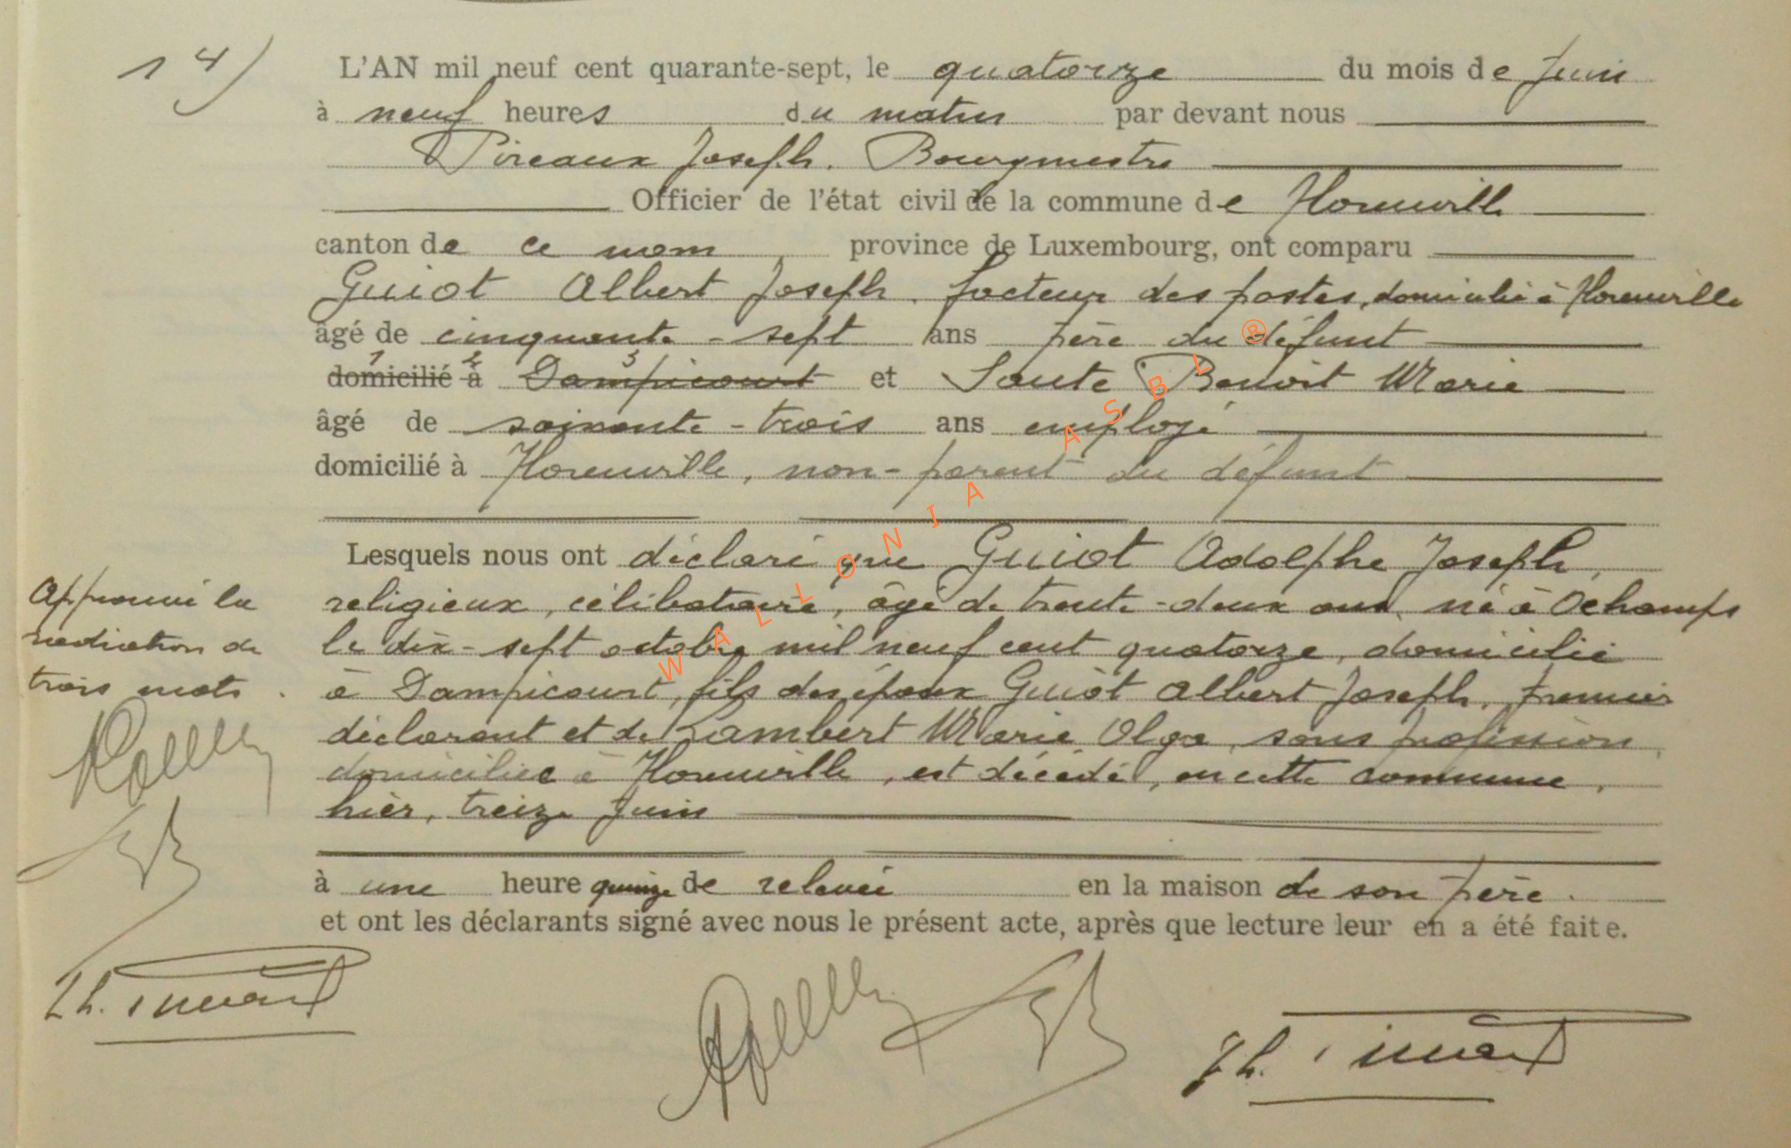 14)
L'AN mil neuf cent quarante-sept, le quatorze du mois de Juin
à neuf heures du matin par devant nous
Pireaux Joseph. Bourgmestre
Officier de l'état civil de la commune de Florenville
canton de ce nom province de Luxembourg, ont comparu
Guiot Albert Joseph. facteur des postes, domicilié à Florenville
âgé de cinquante-sept ans père du défunt
1 2 3
domicilié à Dampicourt et Benoit Marie
âgé de soixante-trois ans employé
domicilié à Florenville, non-parent du défunt
Lesquels nous ont déclaré que Guiot Adolphe Joseph,
religieux, célibataire, âgé de trente-deux ans, né à Ochamps
le dix-sept octobre mil neuf cent quatorze, domicilié
à Dampicourt, fils des époux Guiot Albert Joseph, premier
déclarant et de Lambert Marie Olga, sans profession,
domiciliée à Florenville, est décédé, en cette commune,
hier, treize Juin
à une heure quinze de relevée en la maison de son père.
et ont les déclarants signé avec nous le présent acte, après que lecture leur en a été faite.
Approuvé la
radiation de
trois mots.
WALLONIA ASBL ®